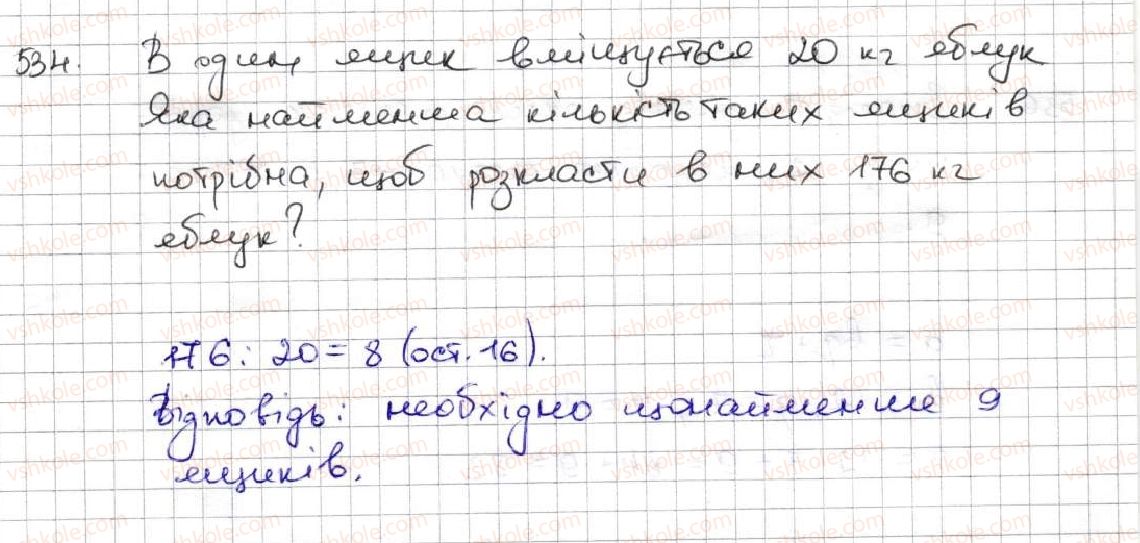 534. В один ящик вміщується 20 кг яблук
Яка найменша кількість таких ящиків
потрібна, щоб розкласти в них 176 кг
яблук?
176 : 20 = 8 (ост. 16).
Відповідь: необхідно щонайменше 9
ящиків.